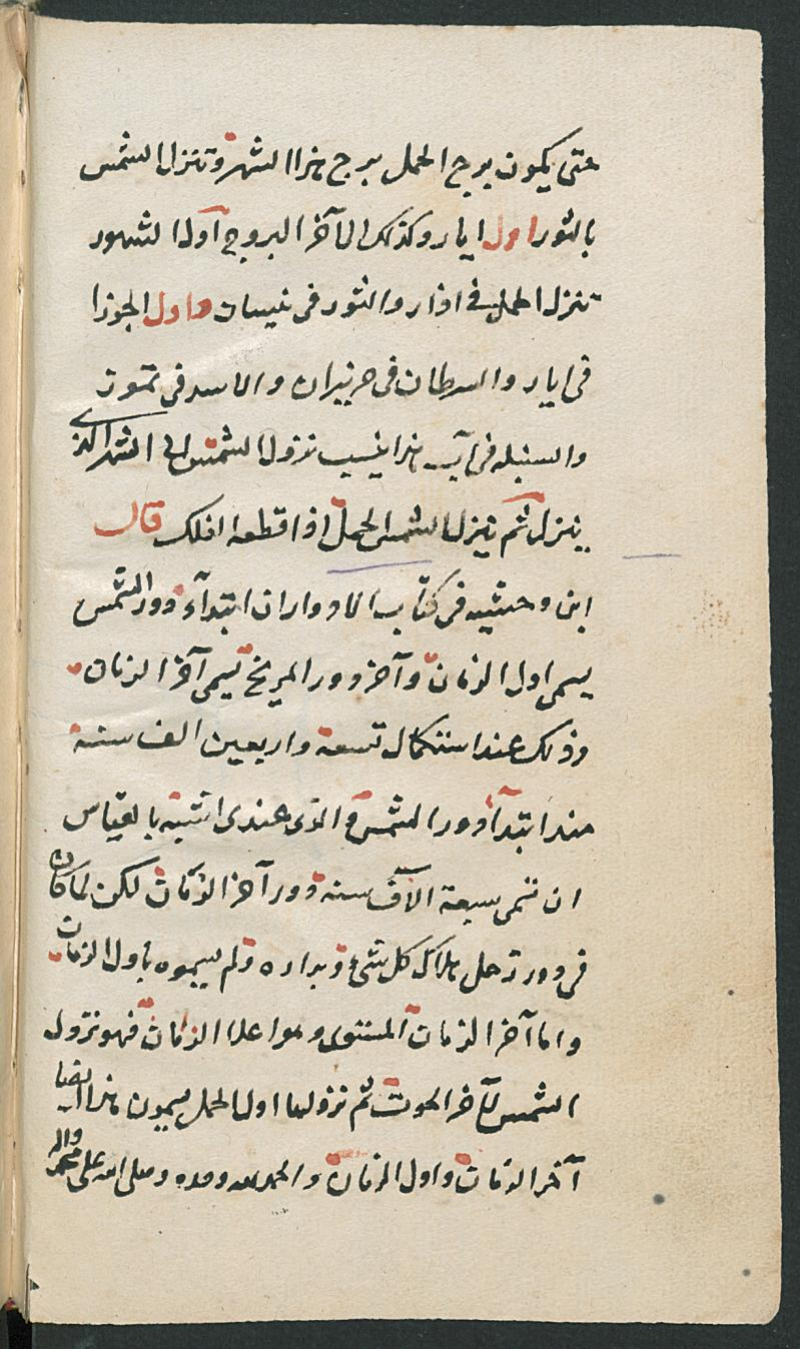 حتى يكون برج الحمل برج هذا الشهر وتنزل الشمس
بالثور اول ايار وكذلك الى آخر البروج أول الشهور
تنزل الحمل في اذار والثور في نيسان واول الجوزا
في ايار والسرطان في حزيران والاسد في تموز
والسنبله في آب هذا بحسب نزول الشمس في الشهر الذي
ينزل ثم ينزل الشمس الحمل اذا قطعه افلك قال
ابن وحشيه في كتاب الادوار ان ابتدآء دور الشمس
يسمى اول الزمان وآخر دور المريخ يسمى آخر الزمان
وذلك عند استكمال تسعة واربعين الف سنة
منذ ابتدآء دور الشمس والذى عندى اثبته بالقياس
ان تتمى سبعة الآف سنه دور آخر الزمان لكن لما كان
فى دور زحل هلاك كل شئ وبداره ولم يسموه باول الزمان
واما آخر الزمان المستوى وهو اعلا الزمان فهو نزول
الشمس لآخر الحوت ثم نزولها اول الحمل يسمون هذا ايضا
آخر الزمان واول الزمان والحمد لله وحده وصلى الله على محمد واله